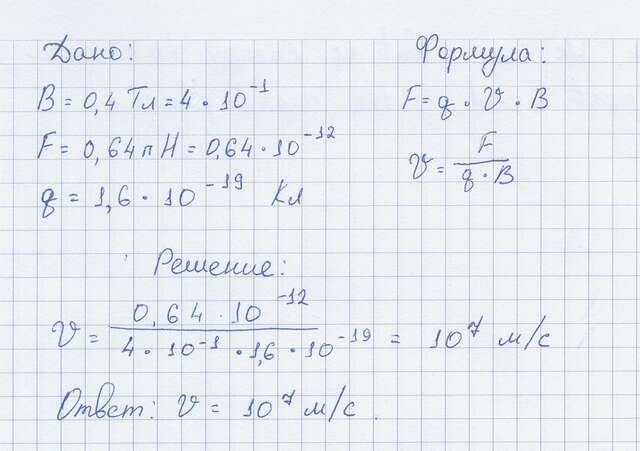 Дано:
B = 0,4 Тл = 4 · 10⁻¹
F = 0,64 п Н = 0,64 · 10⁻¹²
q = 1,6 · 10⁻¹⁹ Кл
Формула:
F = q · V · B
V = F / q · B
Решение:
V = 0,64 · 10⁻¹² / 4 · 10⁻¹ · 1,6 · 10⁻¹⁹ = 10⁷ м/с
Ответ: V = 10⁷ м/с.